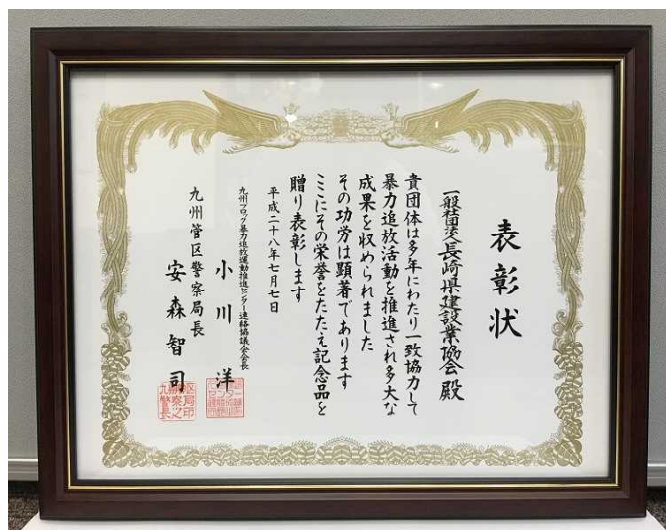 表彰状
一般社団法人長崎県建設業協会 殿
貴団体は多年にわたり一致協力して
暴力追放活動を推進され多大な
成果を収められました
その功労は顕著であります
ここにその栄誉をたたえ記念品を
贈り表彰します
平成二十八年七月七日
九州ブロック暴力追放運動推進センター連絡協議会会長
小川 洋
九州管区警察局長
安森智司